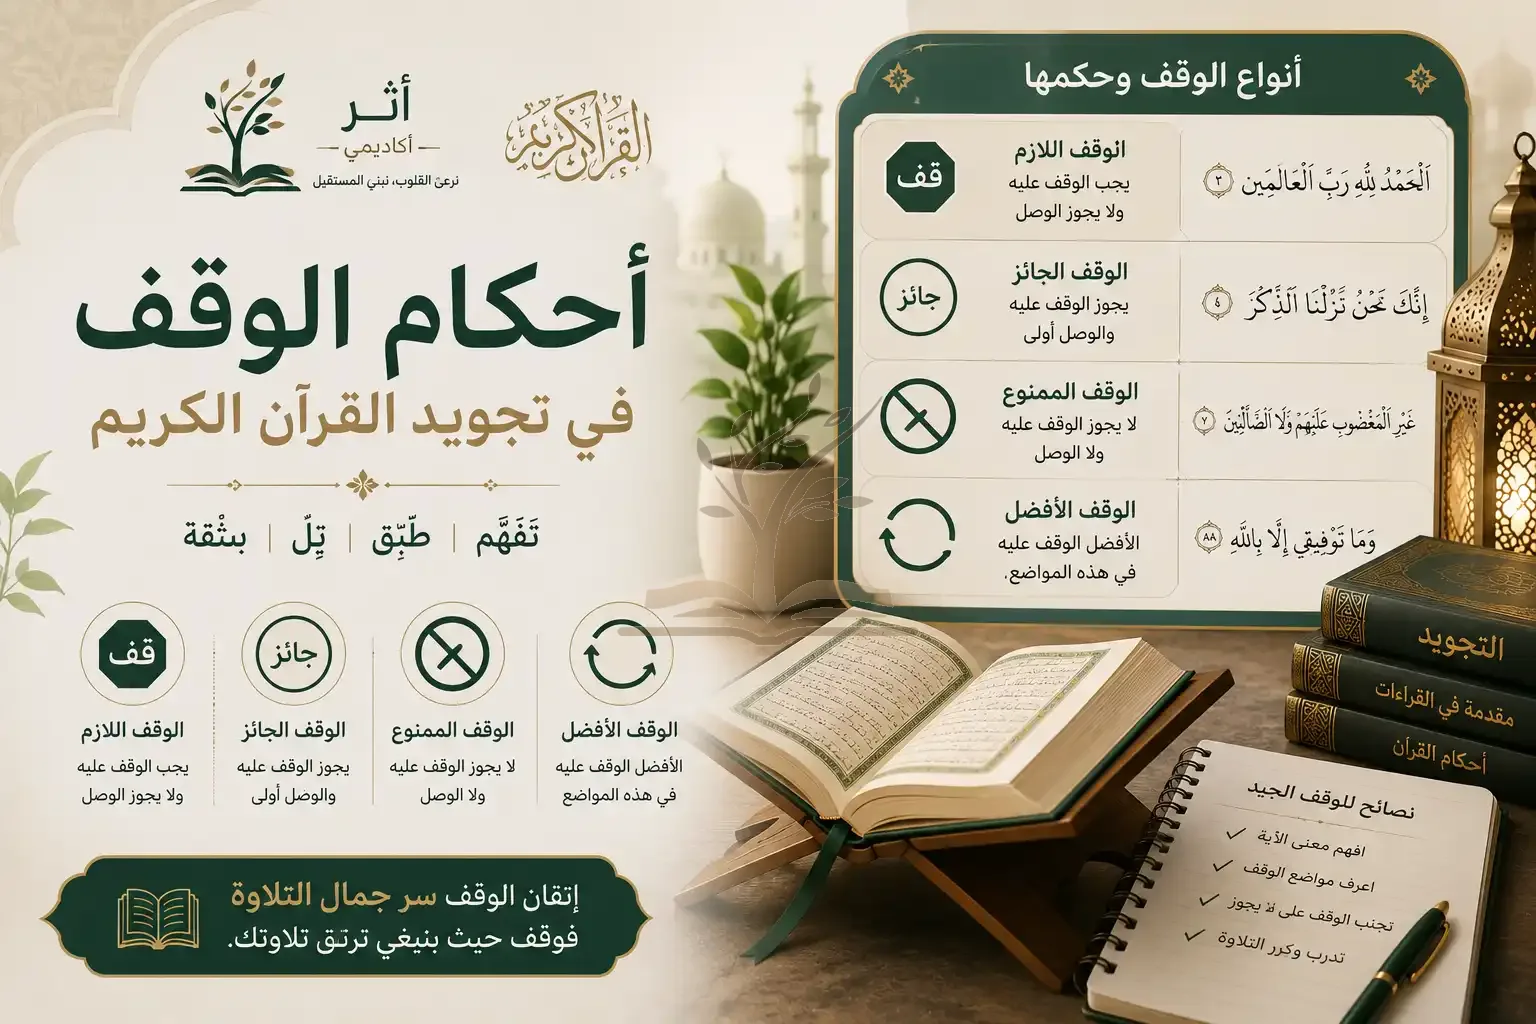 أثـر
أكاديمي
نرعى القلوب، نبني المستقبل
القرآن كريم
أحكام الوقف
في تجويد القرآن الكريم
تَفَهَّم | طبِّق | تِلٌ | بثْقة
قف
الوقف اللازم
يجب الوقف عليه
ولا يجوز الوصل
جائز
الوقف الجائز
يجوز الوقف عليه
والوصل أولى
الوقف الممنوع
لا يجوز الوقف عليه
ولا الوصل
الوقف الأفضل
الأفضل الوقف عليه
في هذه المواضع
إتقان الوقف سر جمال التلاوة
فوقف حيث بنيغي ترتق تلاوتك.
أنواع الوقف وحكمها
الوقف اللازم
يجب الوقف عليه
ولا يجوز الوصل
قف
اَلْحَمْدُ لِلَّهِ رَبَّ اَلْعَالَمِين ٣
الوقف الجائز
يجوز الوقف عليه
والوصل أولى
جائز
إِنَّكَ نَحْنُ نَزَّلْنَا اَلذِّكْرَ ٤
الوقف الممنوع
لا يجوز الوقف عليه
ولا الوصل
غَيْرِ اَلْمَغْضُوبِ عَلَيْهِمْ وَلَا اَلضَّالِّينَ ٧
الوقف الأفضل
الأفضل الوقف عليه
في هذه المواضع.
وَمَا تَوْفِيقِي إِلَّا بِاللَّهِ ٨٨
التجويد
مقدمة في القراءات
أحكام القرآن
نصائح للوقف الجيد
افهم معنى الآية
اعرف مواضع الوقف
تجنب الوقف على لا يجوز
تدرب وكرر التلاوة